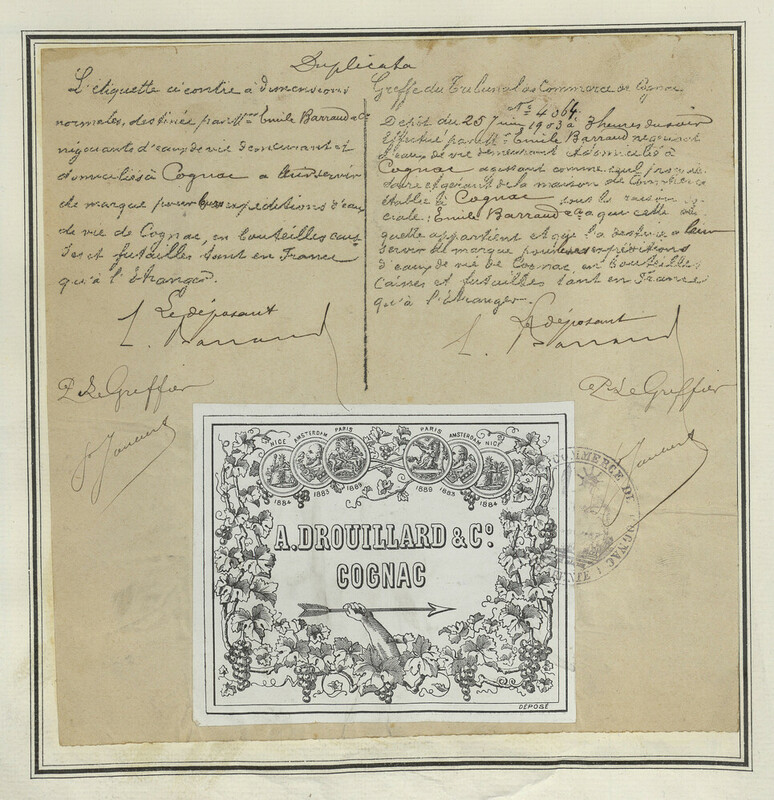 Duplicata
L'étiquette ci contre à dimensions
normales, destinée par Mrs Emile Barraud & Co
négociants d'eaux de vie demeurant et
domiciliés à Cognac a leur servir
de marque pour leurs expéditions d'eaux
de vie de Cognac, en bouteilles cais-
ses et futailles tant en France
qu'à l'Etranger.
Le déposant
E. Barraud
P. Le Greffier
Greffe du Tribunal de Commerce de Cognac
No 4064
Dépôt du 25 Juin 1903 à 3 heures du soir
Effectué par Mr Emile Barraud négociant
d'eaux de vie demeurant et domicilié à
Cognac agissant comme seul
et gérant de la maison de
établie à Cognac sous la raison so-
ciale: Emile Barraud & Co que cette éti-
quette appartient et qu'il la destine a leur
servir de marque pour leurs expéditions
d'eaux de vie de Cognac en bouteilles
caisses et futailles tant en France
qu'à l'Etranger.
Le déposant
E. Barraud
P. Le Greffier
NICE AMSTERDAM PARIS PARIS AMSTERDAM NICE
1884 1883 1889 1889 1883 1884
A. DROUILLARD & Co.
COGNAC
DÉPOSÉ
COMMERCE DE COGNAC